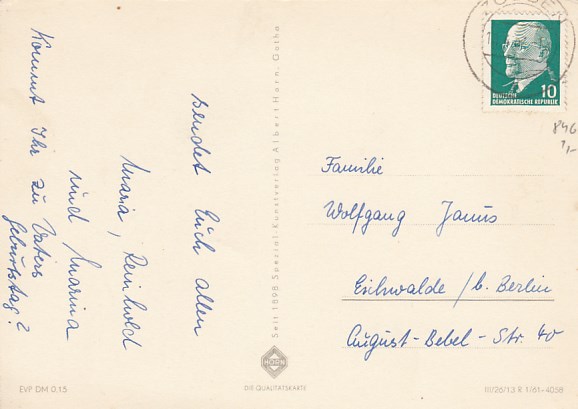 sendet Euch allen
Maria, Reinhold
und Marina
Kommt Ihr zu Vaters
Geburtstag?
Seit 1898 Spezial Kunstverlag Albert Horn, Gotha
10
DEUTSCHE
DEMOKRATISCHE REPUBLIK
846
1,-
Familie
Wolfgang Janus
Eichwalde / b. Berlin
August-Bebel-Str. 40
HORN
EVP DM 0,15
DIE QUALITÄTSKARTE
III/26/13 R 1/61-4058